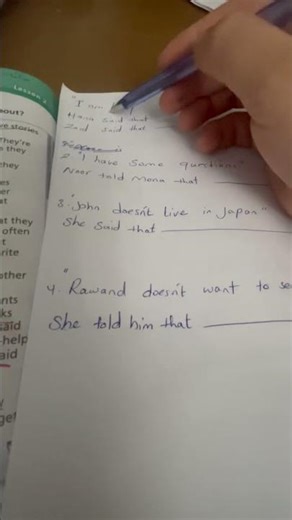 Lesson
out?
ve stories
They're
s they
they
es
er
at
at they
often
t
rite
other
nts
ks
said
help
aid
y
get
"I am
Hana said that
Zaid said that
2. "I have some questions"
Noor told Mona that
3. "John doesn't live in Japan"
She said that
4. "Rawand doesn't want to se
She told him that